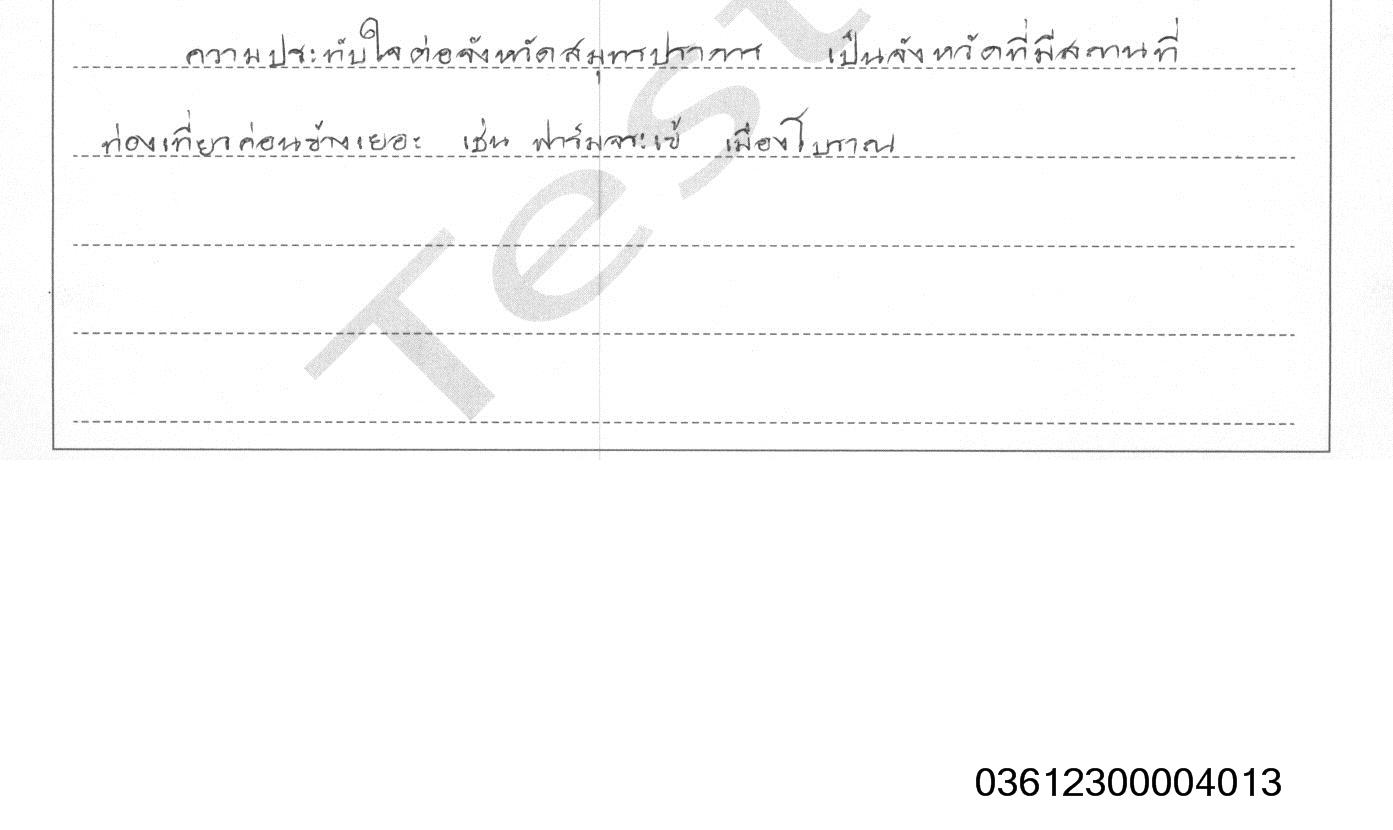 ความประทับใจต่อจังหวัดสมุทรปราการ เป็นจังหวัดที่มีสถานที่
ท่องเที่ยวค่อนข้างเยอะ เช่น ฟาร์มจระเข้ เมืองโบราณ
Test
03612300004013